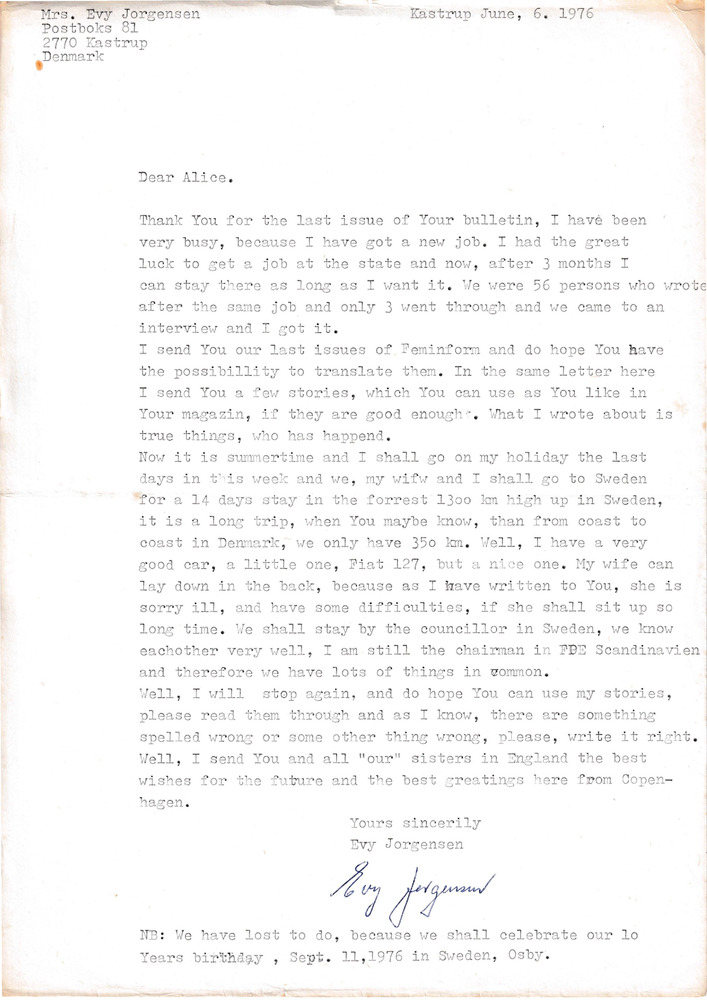 Mrs. Evy Jorgensen
Kastrup June, 6. 1976
Postboks 81
2770 Kastrup
Denmark
Dear Alice.
Thank You for the last issue of Your bulletin, I have been
very busy, because I have got a new job. I had the great
luck to get a job at the state and now, after 3 months I
can stay there as long as I want it. We were 56 persons who wrote
after the same job and only 3 went through and we came to an
interview and I got it.
I send You our last issues of Feminform and do hope You have
the possibillity to translate them. In the same letter here
I send You a few stories, which You can use as You like in
Your magazin, if they are good enough. What I wrote about is
true things, who has happend.
Now it is summertime and I shall go on my holiday the last
days in this week and we, my wifw and I shall go to Sweden
for a 14 days stay in the forrest 13oo km high up in Sweden,
it is a long trip, when You maybe know, than from coast to
coast in Denmark, we only have 35o km. Well, I have a very
good car, a little one, Fiat 127, but a nice one. My wife can
lay down in the back, because as I have written to You, she is
sorry ill, and have some difficulties, if she shall sit up so
long time. We shall stay by the councillor in Sweden, we know
eachother very well, I am still the chairman in FPE Scandinavien
and therefore we have lots of things in common.
Well, I will  stop again, and do hope You can use my stories,
please read them through and as I know, there are something
spelled wrong or some other thing wrong, please, write it right.
Well, I send You and all "our" sisters in England the best
wishes for the future and the best greatings here from Copen-
hagen.
Yours sincerily
Evy Jorgensen
Evy Jorgensen
NB: We have lost to do, because we shall celebrate our lo
Years birthday , Sept. 11,1976 in Sweden, Osby.